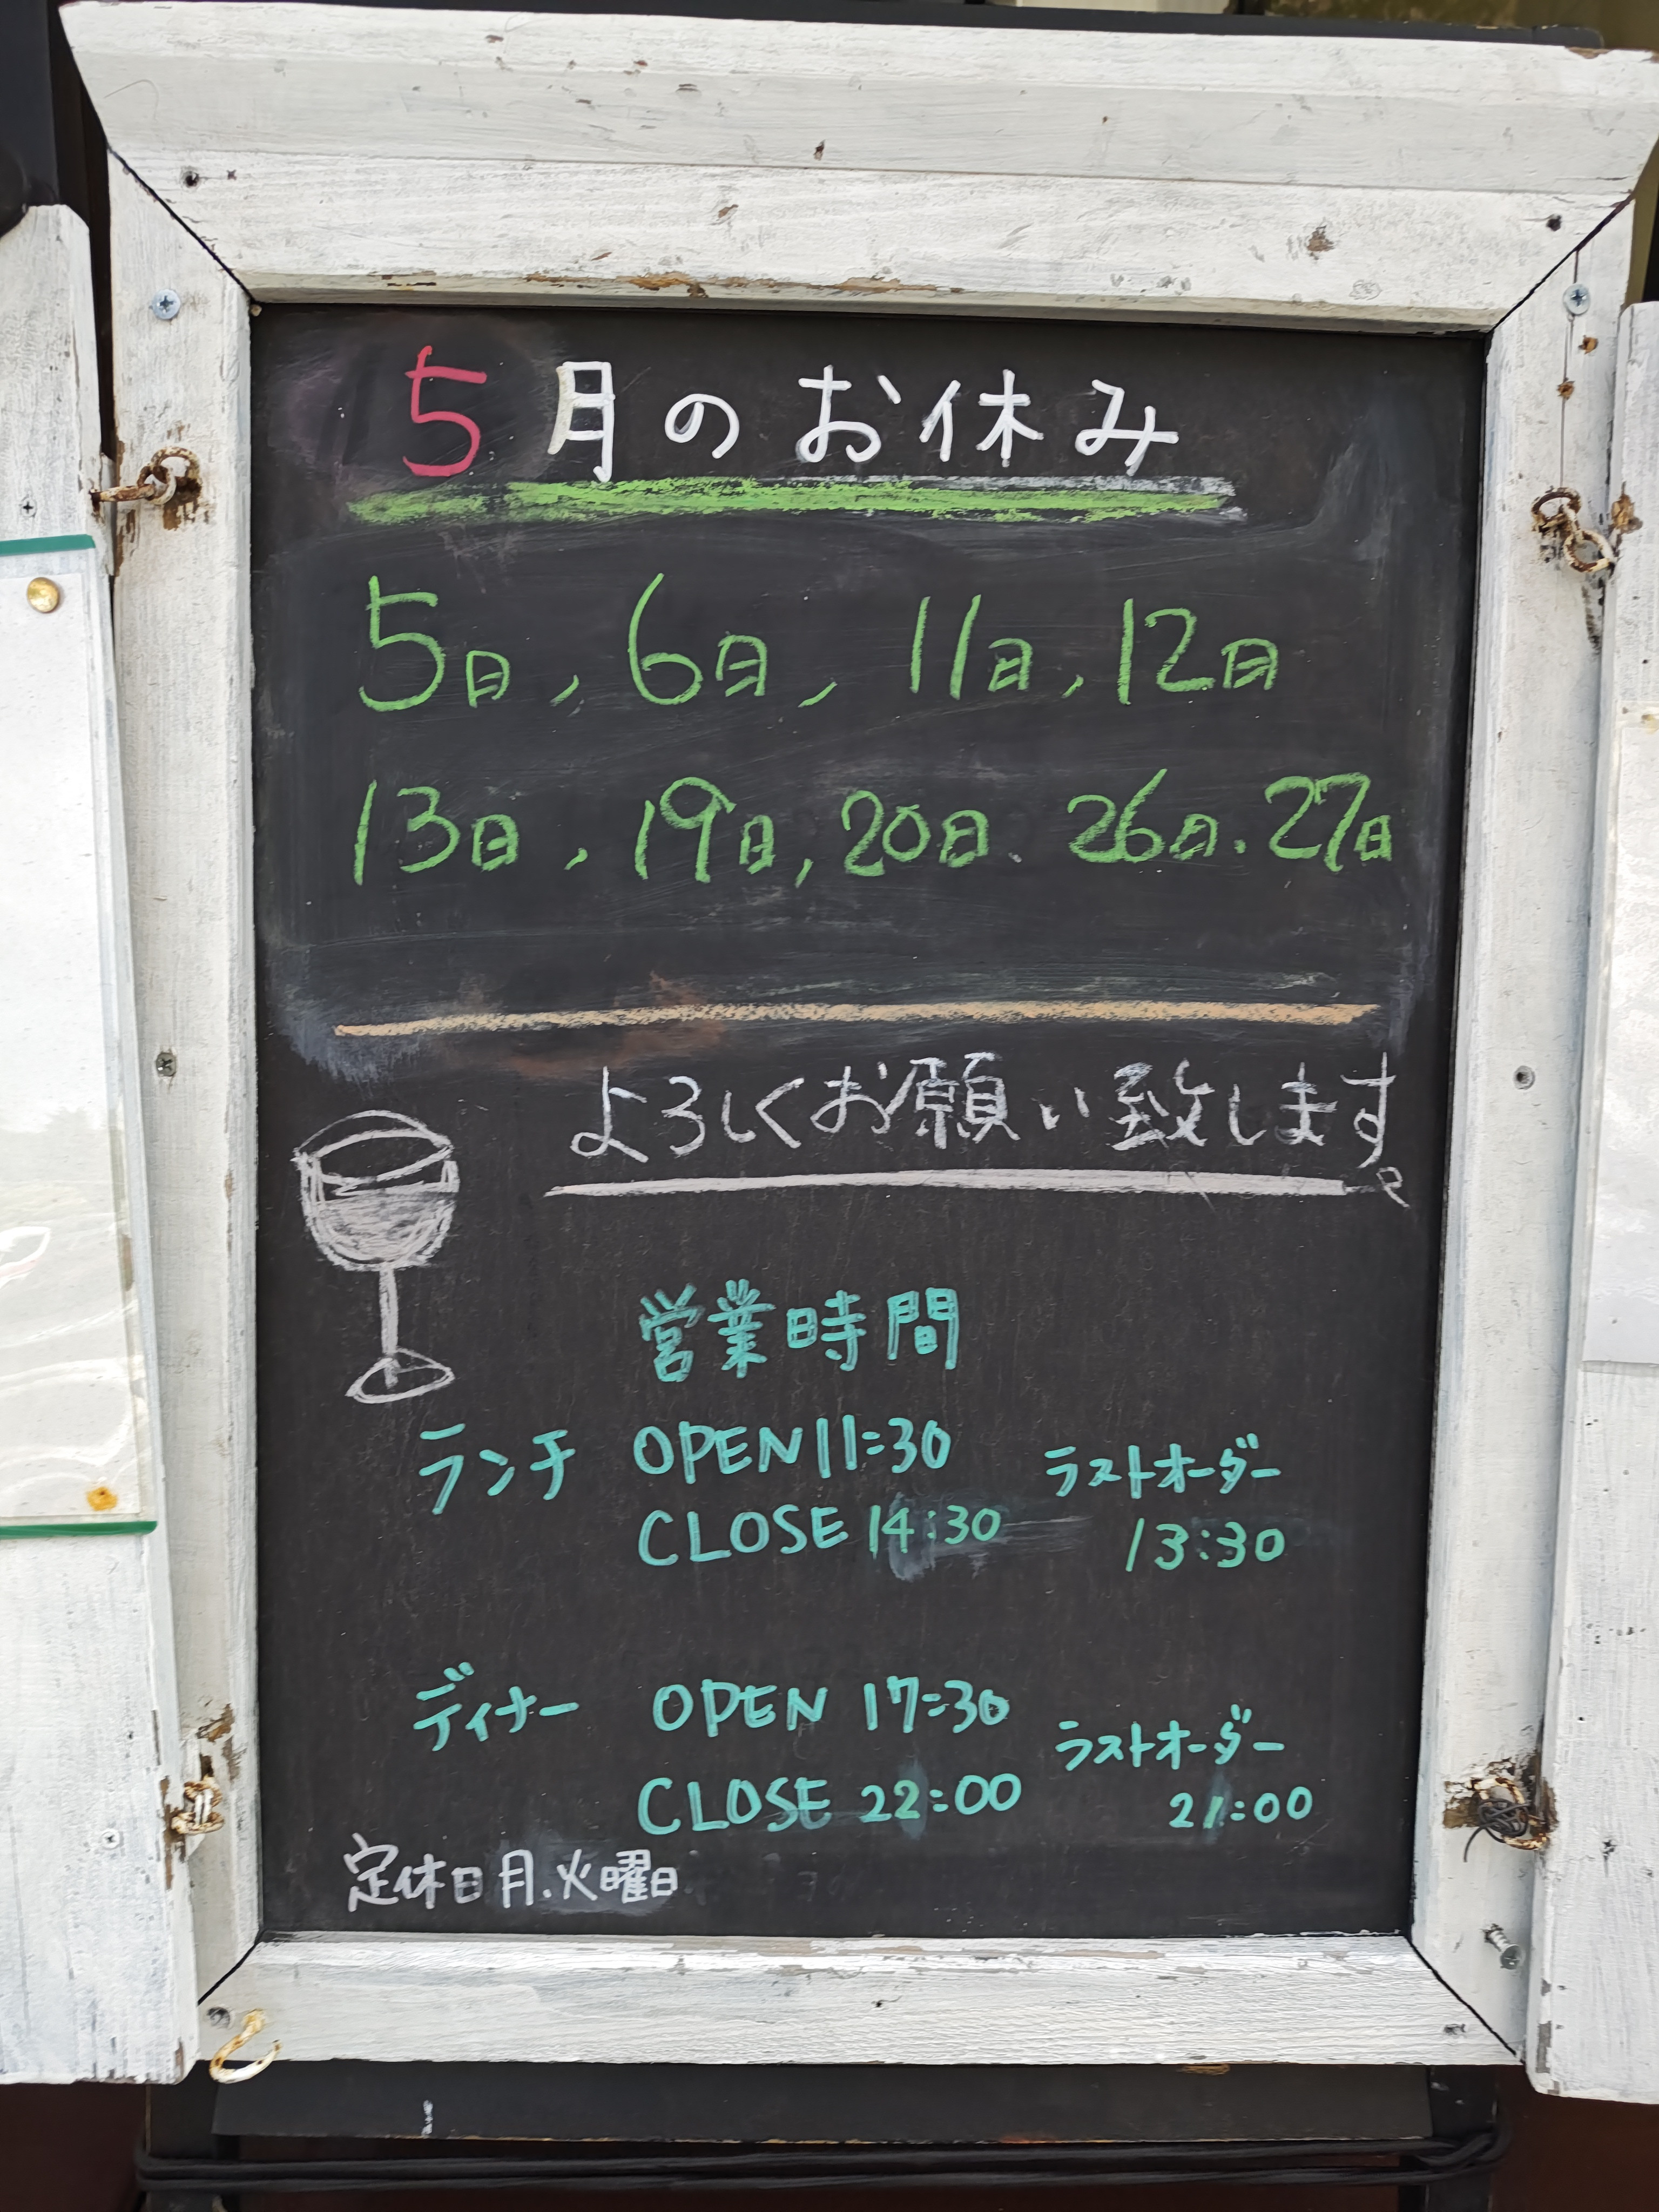 5月のお休み
5日, 6日, 11日, 12日
13日, 19日, 20日. 26日. 27日
よろしくお願い致します。
営業時間
ランチ OPEN 11:30 ラストオーダー
CLOSE 14:30 13:30
ディナー OPEN 17:30 ラストオーダー
CLOSE 22:00 21:00
定休日月.火曜日